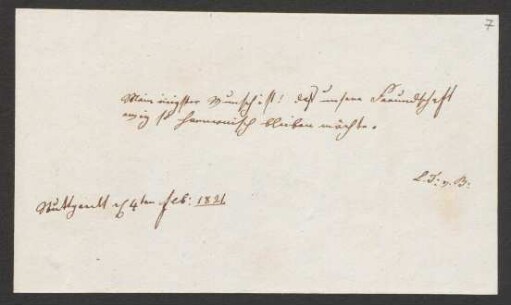 7
Mein einigster Wunsch ist! daß unsere Freundschaft
ewig so harmonisch bleiben möchte.
L. T. v. B.
Stuttgardt d 4ten Feb: 1821